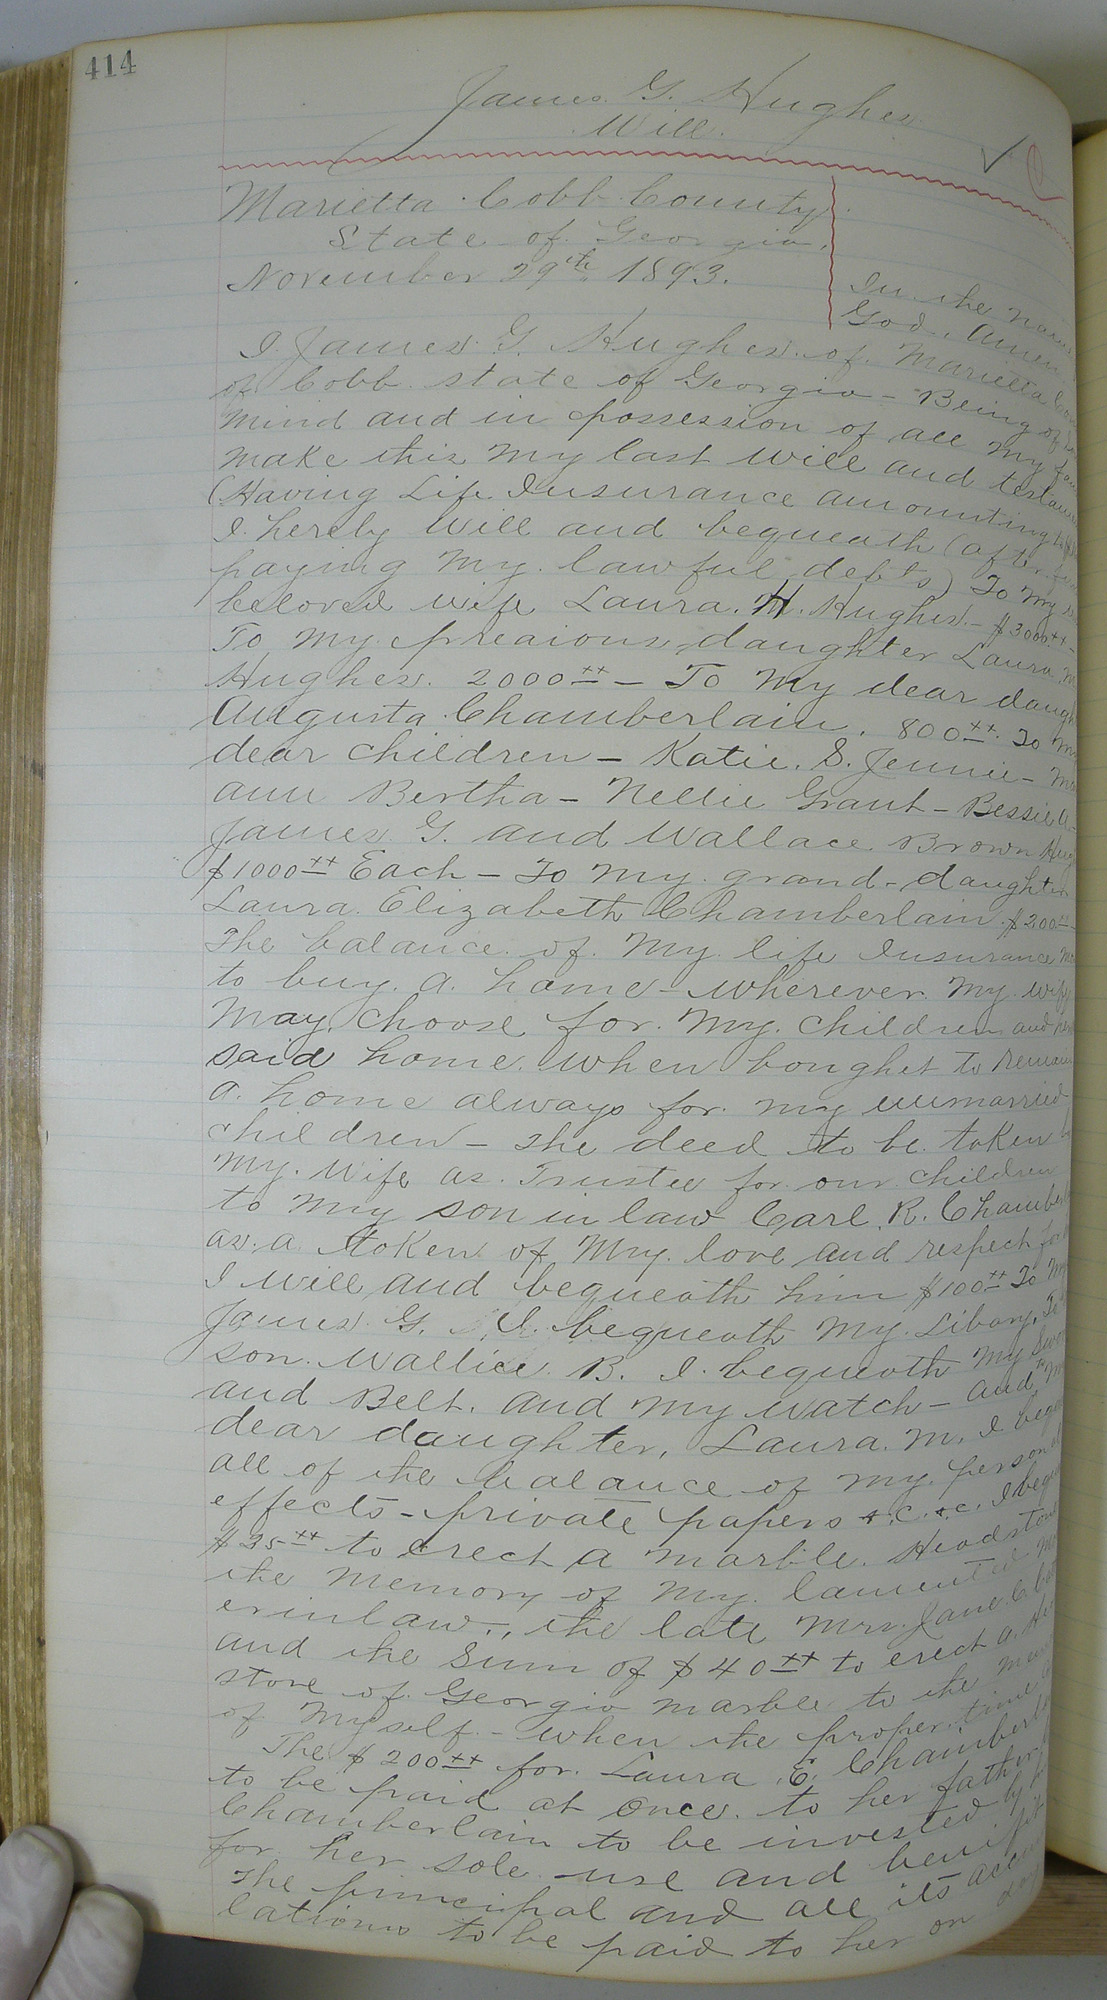 414
James. G. Hughes.
Will.
Marietta Cobb County
State of Georgia.
November 29th 1893.
In the name
God. Amen
I. James. G. Hughes. of. Marietta
of Cobb. state of Georgia - Being of
mind and in possession of all my
make this my last will and
(Having Life Insurance amounting
I. hereby Will and bequeath (after
paying my. lawful debts) To my
beloved wife Laura. H. Hughes. - $3000.xx -
To my preaious daughter Laura. M
Hughes. 2000xx - To my dear
Augusta Chamberlain. 800xx. To my
dear children - Katie. S. Jennie -
ann Bertha - Nellie Grant - Bessie
James. G. and Wallace Brown
$1000xx Each - To my. grand-daughter
Laura. Elizabeth Chamberlain. $200xx -
The balance. of. my. life Insurance
to buy. a. home - wherever. my. wife
may. choose for. my. children and
said home. when bought to remain
a. home always for. my unmarried
children - The deed to be. taken
my. wife as. Trustee for. our. children
to my son in law Carl. R.
as. a token of my. love and respect for
I will and bequeath him $100xx To my
James. G. I. bequeath my. Libary. To
son. Wallice. B. I. bequeath my
and Belt. and my watch - and
dear daughter, Laura. M. I
all of the balance of my. personal
effects - private papers &.c. &.c. I
$35xx to erect a marble.
the memory of my. lamented
erinlaw., the late Mrs. Jane. C.
and the sum of $40xx to erect a.
stone of. Georgia marble to the
of myself. - when the proper. time
The $200xx for. Laura. E.
to be paid at once. to her father
Chamberlain to be invested by
for her sole use and benifit
The principal and all its
lations to be paid to her on